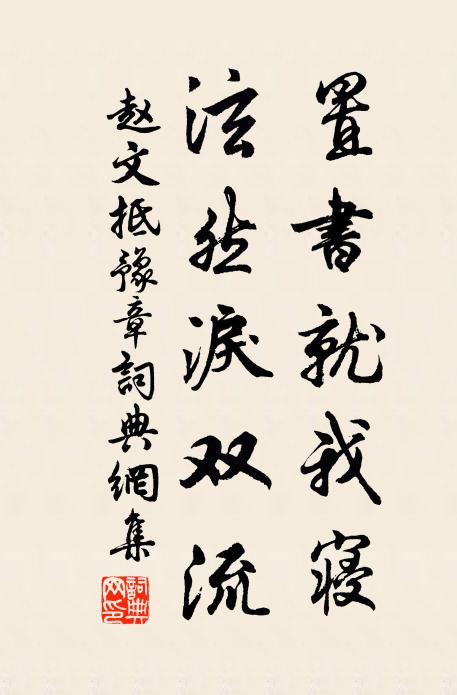 置書就我寢
泫然淚双流
赵文抵豫章詞典網集
詞典网印